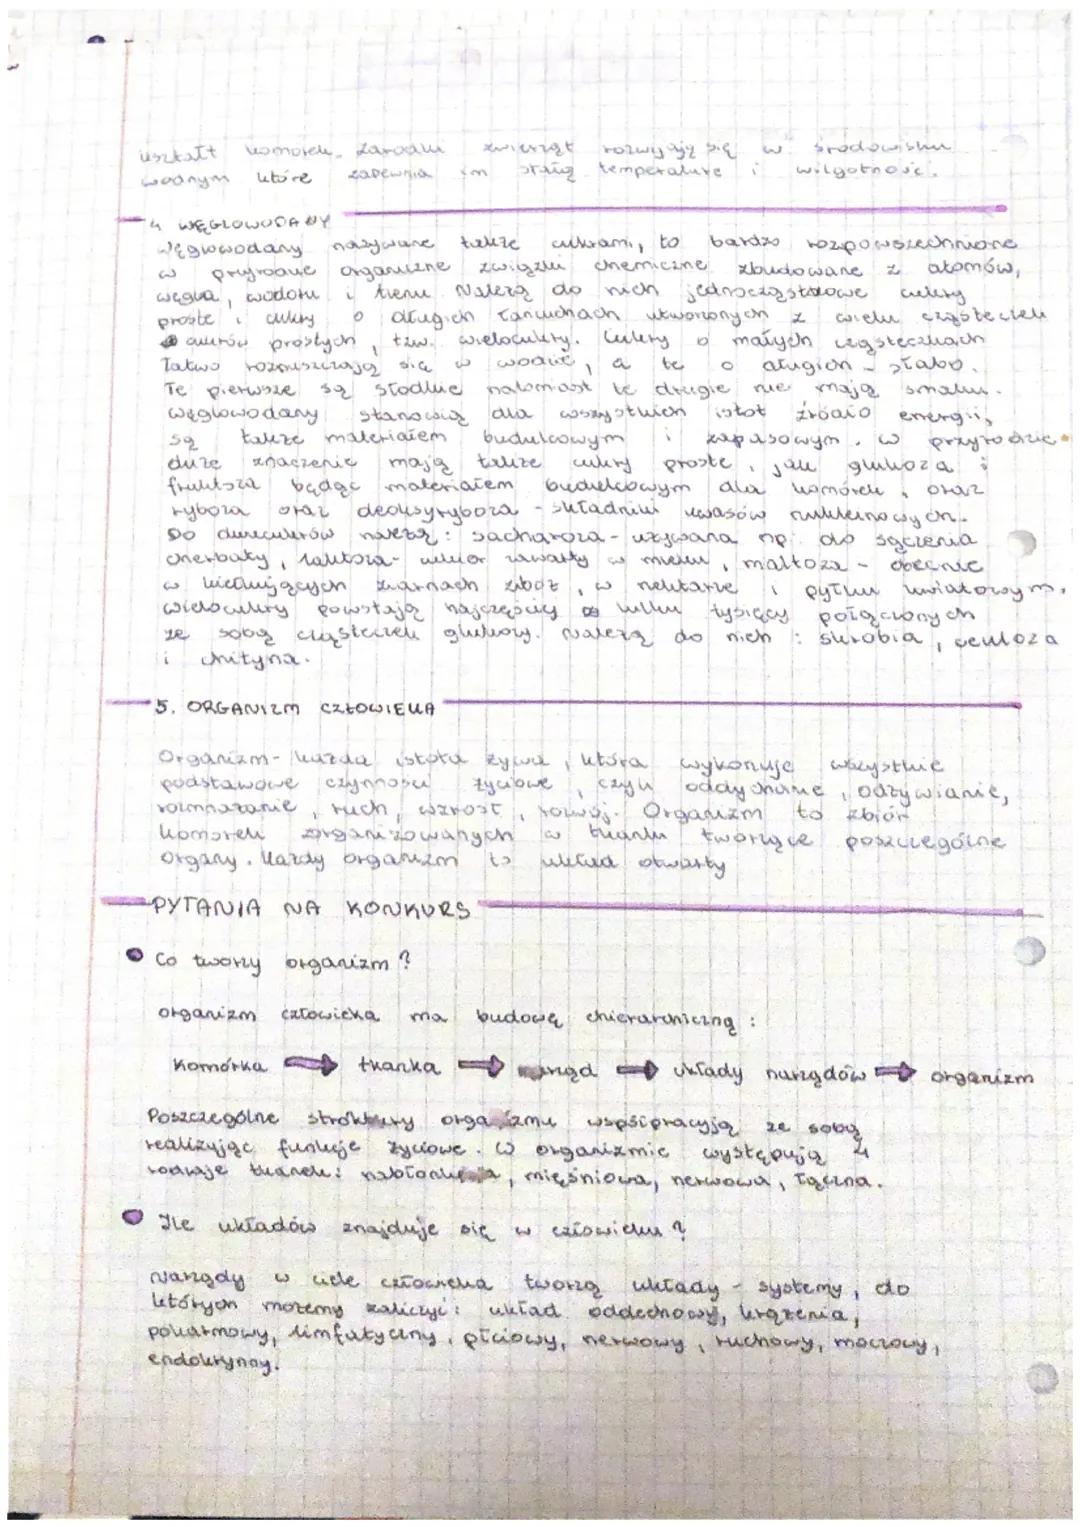 kształt komórek. Zarodki zwierząt rozwijają się w środowisku
wodnym które zapewnia im stałą temperaturę i wilgotność.
4 WĘGLOWODANY
Węglowodany nazywane także cukrami, to bardzo rozpowszechnione
w przyrodzie organiczne związki chemiczne zbudowane z atomów,
węgla, wodoru i tlenu. Należą do nich jednocząsteczkowe cukry
proste i cukry o długich łańcuchach utworzonych z wielu cząsteczek
cukrów prostych, tzw. wielocukry. Cukry o małych cząsteczkach
łatwo rozpuszczają się w wodzie, a te o długich - słabo.
Te pierwsze są słodkie natomiast te drugie nie mają smaku.
Węglowodany stanowią dla wszystkich istot źródło energii,
są także materiałem budulcowym i zapasowym. W przyrodzie
duże znaczenie mają także cukry proste, jak glukoza i
fruktoza będąc materiałem budulcowym dla komórek, oraz
ryboza oraz deoksyryboza - składniki kwasów nukleinowych.
Do dwucukrów należą: sacharoza - używana np. do słodzenia
cherbaty, laktoza - cukier zawarty w mleku, maltoza - obecnie
w kiełkujących ziarnach zbóż, w nektarze i pyłku kwiatowym.
Wielocukry powstają najczęściej z kilku tysięcy połączonych
ze sobą cząsteczek glukozy. Należą do nich: skrobia, celuloza
i chityna.
5. ORGANIZM CZŁOWIEKA
Organizm - każda istota żywa, która wykonuje wszystkie
podstawowe czynności życiowe, czyli oddychanie, odżywianie,
rozmnażanie, ruch, wzrost, rozwój. Organizm to zbiór
komórek zorganizowanych w tkanki tworzące poszczególne
organy. Każdy organizm to układ otwarty
PYTANIA NA KONKURS
Co tworzy organizm?
organizm człowieka ma budowę chierarchiczną:
Komórka → tkanka → narząd → układy narządów → organizm
Poszczególne struktury organizmu współpracują ze sobą
realizując funkcje życiowe. W organizmie występują 4
rodzaje tkanek: nabłonkowa, mięśniowa, nerwowa, łączna.
Ile układów znajduje się w człowieku?
Narządy w ciele człowieka tworzą układy - systemy, do
których możemy zaliczyć: układ oddechowy, krążenia,
pokarmowy, limfatyczny, płciowy, nerwowy, ruchowy, moczowy,
endokryny.